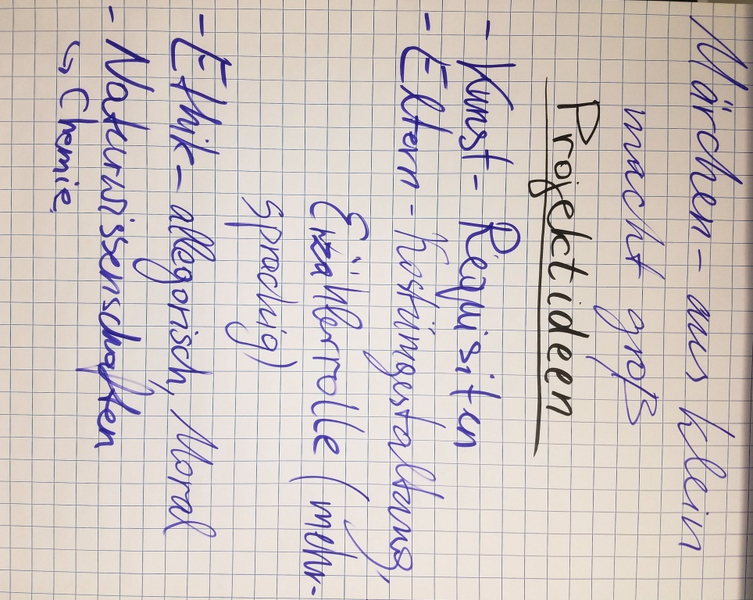 Märchen - aus klein
macht groß
Projektideen
- Kunst - Requisiten
- Eltern - Kostümgestaltung,
Erzählerrolle (mehr-
sprachig)
- Ethik - allegorisch, Moral
- Naturwissenschaften
↳ Chemie